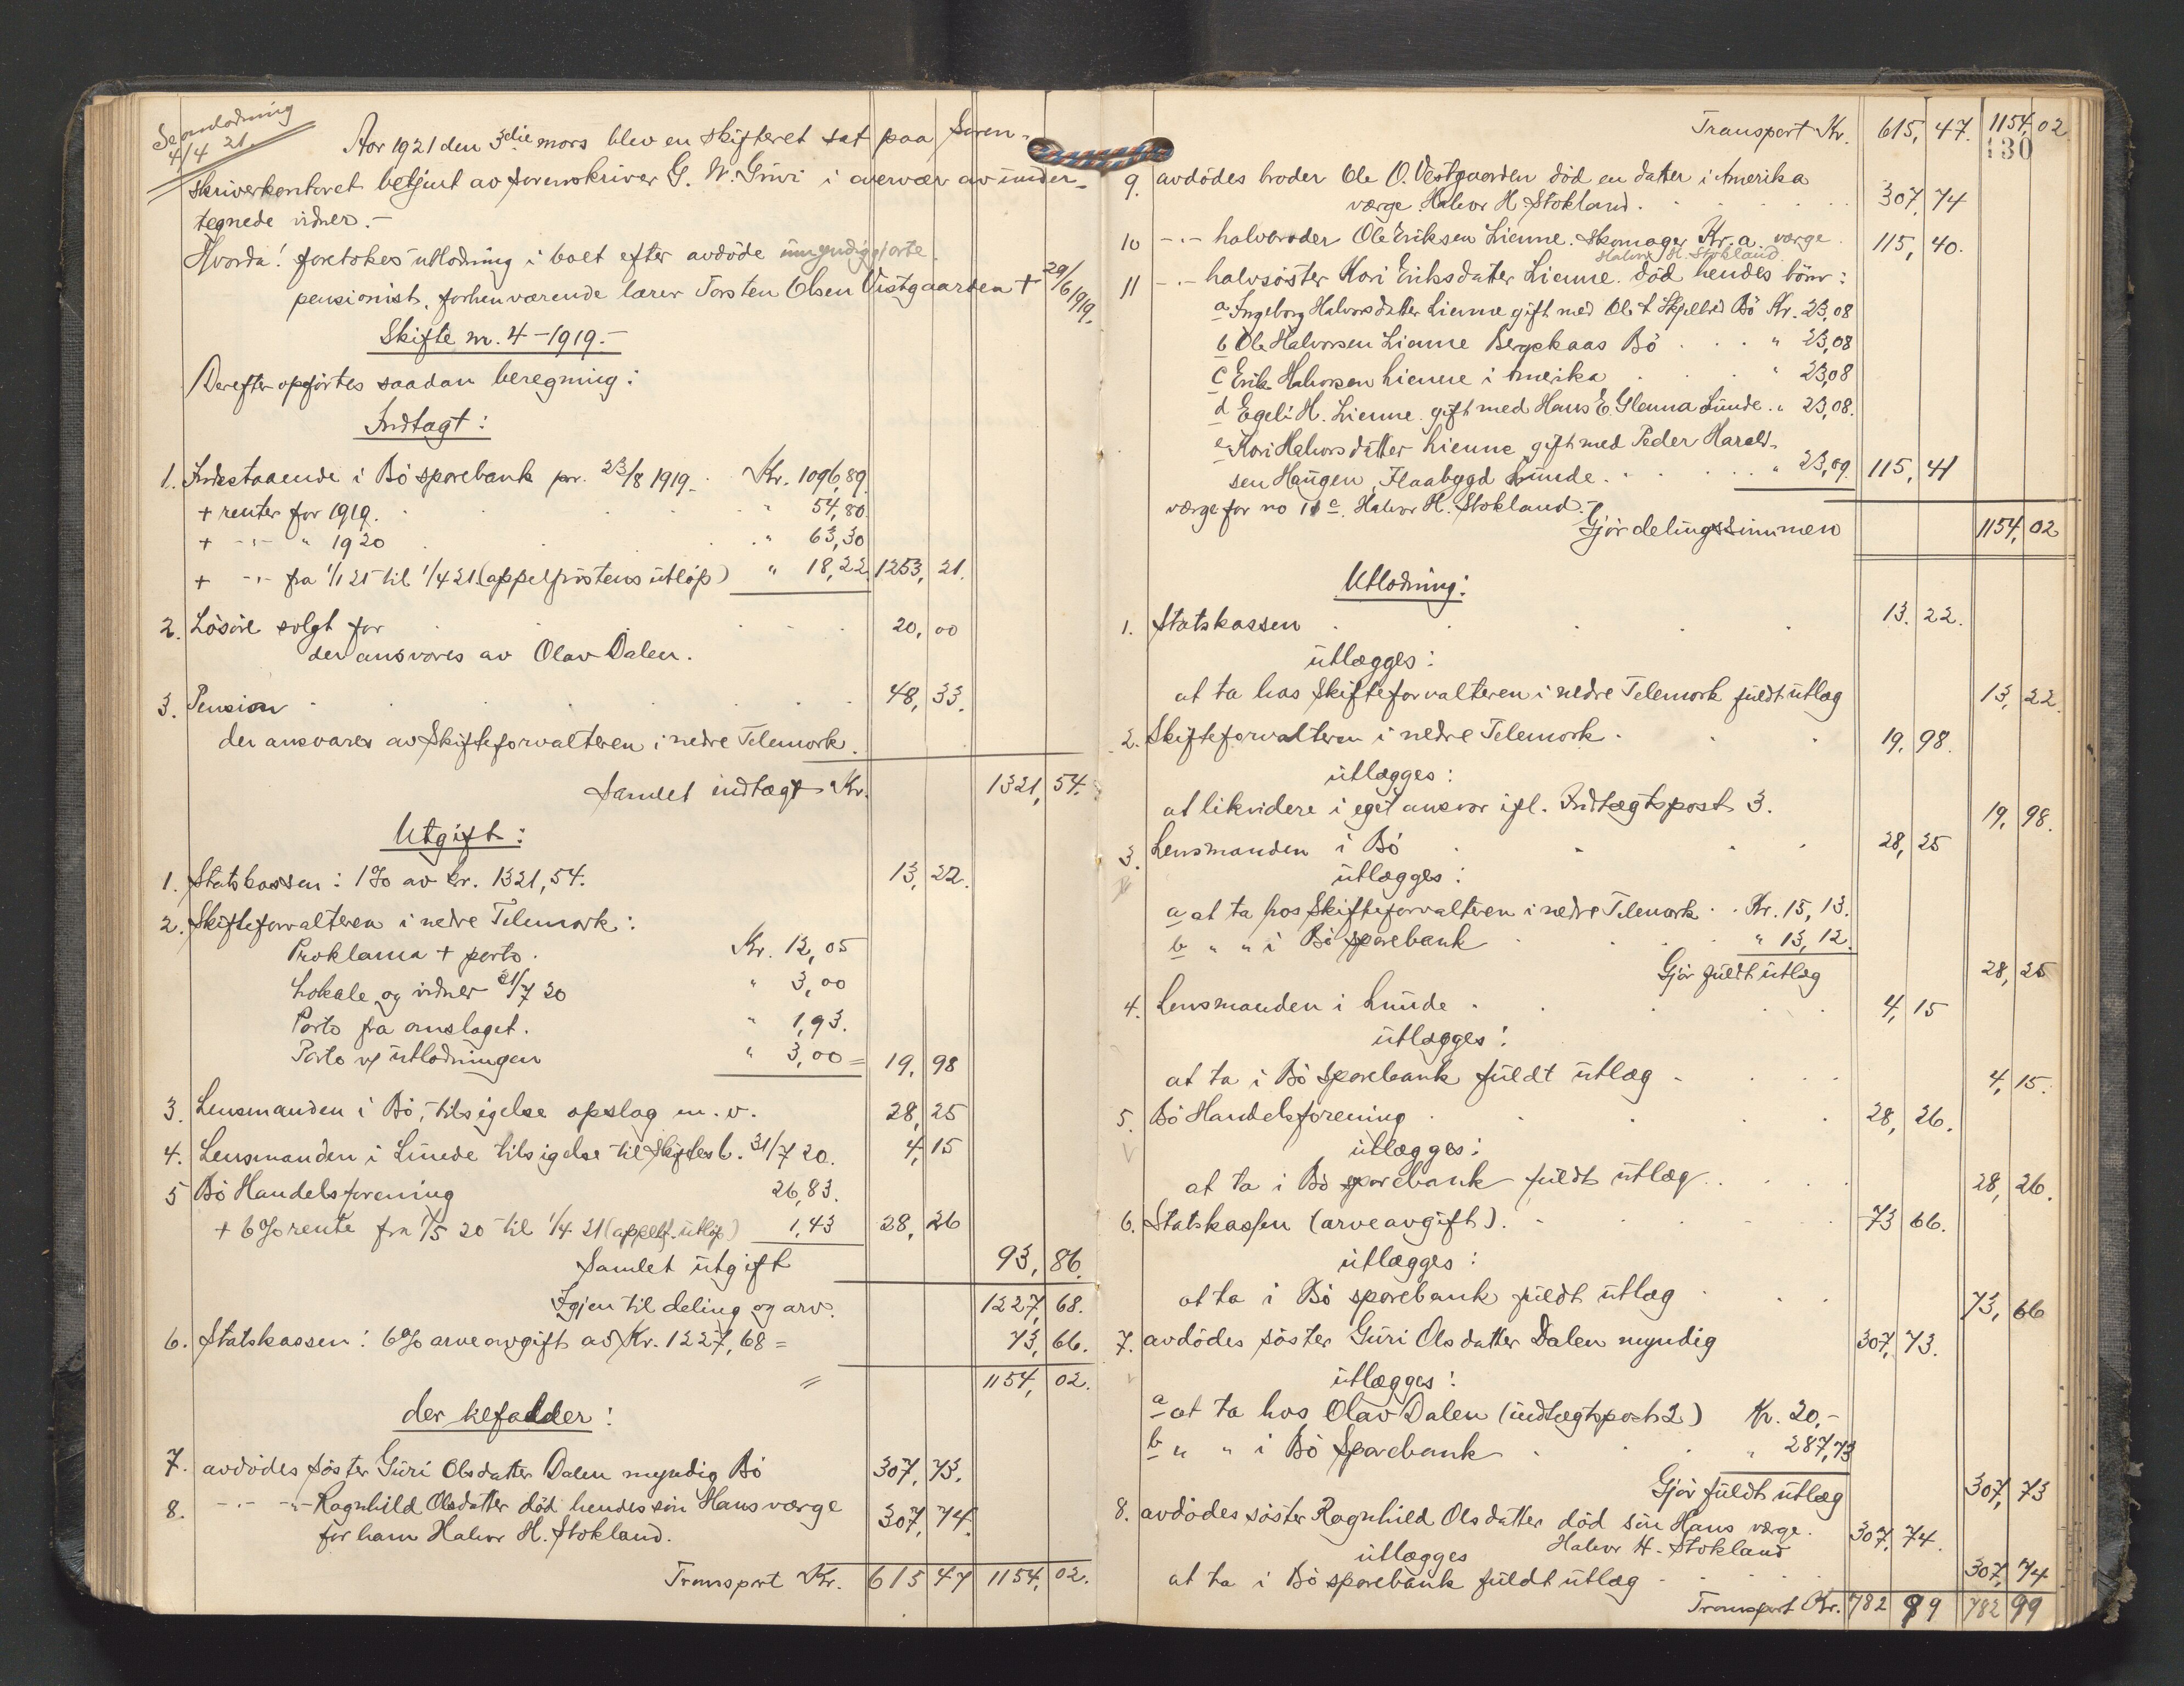 Se omlodning
4/4 21.
Aar 1921 den 3die mars blev en skifteret sat paa Soren-
skriverkontoret betjent av sorenskriver G. W. i overvær av under-
tegnede vidner.-
Hvorda! foretokes utlodning i boet efter avdöde umyndiggjorte
pensionist, forhenværende lærer Torsten Olsen Vestgaarden + 29/6 1919.
Skifte nr. 4-1919.-
Derefter opförtes saadan beregning:
Indtægt:
1. Indestaaende i Bö sparebank pr. 23/8 1919. Kr. 1096,89.
+ renter for 1919. " 54,80.
+ -"- " 1920 " 63,30
+ -"- fra 1/1 21 til 1/4 21 (appelfristens utlöp) " 18,22 1253, 21.
2. Lösöre solgt for 20,00
der ansvares av Olav Dalen.
3. Pension 48, 33.
der ansvares av Skifteforvalteren i nedre Telemark.
Samlet indtægt Kr. 1321, 54.
Utgift:
1. Statskassen: 1% av kr. 1321,54. 13, 22.
2. Skifteforvalteren i nedre Telemark:
Proklama + porto. Kr. 12,05
Lokale og vidner 31/7 20 " 3,00
Porto fra omslaget. " 1,93.
Porto v/ utlodningen " 3,00 = 19, 98
3. Lensmanden i Bö, tilsigelse opslag m.v. 28, 25
4. Lensmanden i Lunde tilsigelse til Skiftes. 31/7 20. 4, 15
5 Bö Handelsforening 26,83.
+ 6% rente fra 1/5 20 til 1/4 21 (appelf. utlöp) 1,43 28, 26
Samlet utgift 93, 86.
Igjen til deling og arv. 1227, 68.
6. Statskassen: 6% arveavgift av Kr. 1227,68 = 73, 66.
= 1154, 02.
der tilfalder:
7. avdödes söster Guri Olsdatter Dalen myndig Bö 307, 73.
8. -"- -"- Ragnhild Olsdatter död hendes sön Hans værge
for ham Halvor H. Stokland. 307, 74.
Transport Kr. 615 47 1154, 02.
Transport Kr. 615, 47. 1154, 02
130
9. avdödes broder Ole O. Vestgaarden död en datter i Amerika
værge Halvor H Stokland. 307, 74
10 -"- halvbroder Ole Eriksen Lienne. Skomager Kr.a. værge 115, 40.
Halvor H. Stokland.
11 -"- halvsöster Kari Eriksdatter Lienne. död hendes börn:
a Ingeborg Halvorsdatter Lienne gift med Ole Bö Kr. 23,08
b Ole Halvorsen Lienne Bergkaas Bö " 23,08
c Erik Halvorsen Lienne i Amerika " 23,08
d Egeli H. Lienne gift med Hans E. Glenna Lunde. " 23,08.
e Kari Halvorsdatter Lienne gift med Peder Harald-
sen Haugen, Flaabygd Lunde. " 23,09. 115, 41
værge for no 11 c. Halvor H. Stokland.-
Gjör delingssummen 1154, 02
Utlodning:
1. Statskassen 13. 22.
utlægges:
at ta hos Skifteforvalteren i nedre Telemark fuldt utlæg 13, 22.
2. Skifteforvalteren i nedre Telemark 19, 98.
utlægges:
at likvidere i eget ansvar ifl. Indtægtspost 3. 19, 98.
3. Lensmanden i Bö 28, 25
utlægges:
a at ta hos Skifteforvalteren i nedre Telemark Kr. 15,13.
b " " i Bö sparebank " 13,12.
Gjör fuldt utlæg 28, 25
4. Lensmanden i Lunde 4, 15
utlægges:
at ta i Bö sparebank fuldt utlæg 4, 15.
5. Bö Handelsforening 28, 26.
utlægges:
at ta i Bö sparebank fuldt utlæg 28, 26.
6. Statskassen (arveavgift). 73 66.
utlægges:
at ta i Bö sparebank fuldt utlæg 73, 66
7. avdödes söster Guri Olsdatter Dalen myndig 307, 73.
utlægges:
a at ta hos Olav Dalen (indtægtspost 2) Kr. 20,-
b " " i Bö Sparebank " 287,73
Gjör fuldt utlæg 307, 73
8. avdödes söster Ragnhild Olsdatter död sön Hans værge. 307, 74.
Halvor H. Stokland
utlægges
at ta i Bö sparebank fuldt utlæg 307, 74
Transport Kr. 782 99 782 99